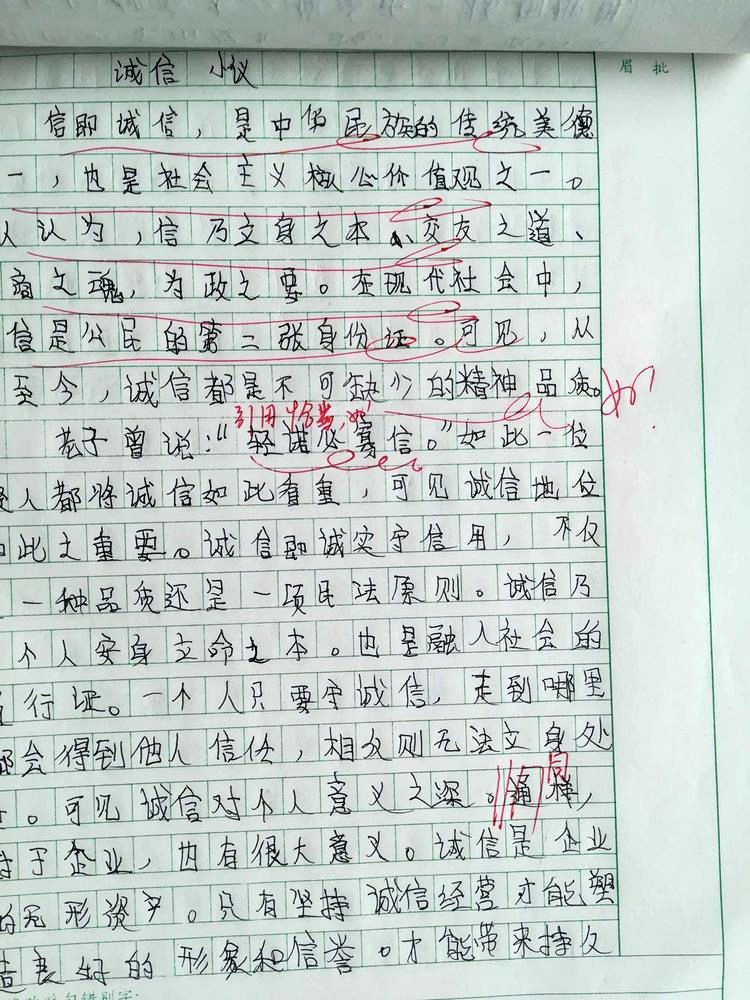 诚信 小议
眉 批
信即诚信，是中华民族的传统美德
一，也是社会主义核心价值观之一。
认为，信乃立身之本、交友之道、
商之魂，为政之要。在现代社会中，
信是公民的第二张身份证。可见，从
至今，诚信都是不可缺少的精神品质。
引用恰当，好
老子曾说："轻诺必寡信。"如此一位
人都将诚信如此看重，可见诚信地位
此之重要。诚信即诚实守信用，不仅
一种品质还是一项民法原则。诚信乃
个人安身立命之本。也是融入社会的
行证。一个人只要守诚信，走到哪里
都会得到他人信任，相反则无法立身处
同
。可见诚信对个人意义之深。通样，
于企业，也有很大意义。诚信是企业
的无形资产。只有坚持诚信经营才能塑
造良好的形象和信誉。才能带来持久